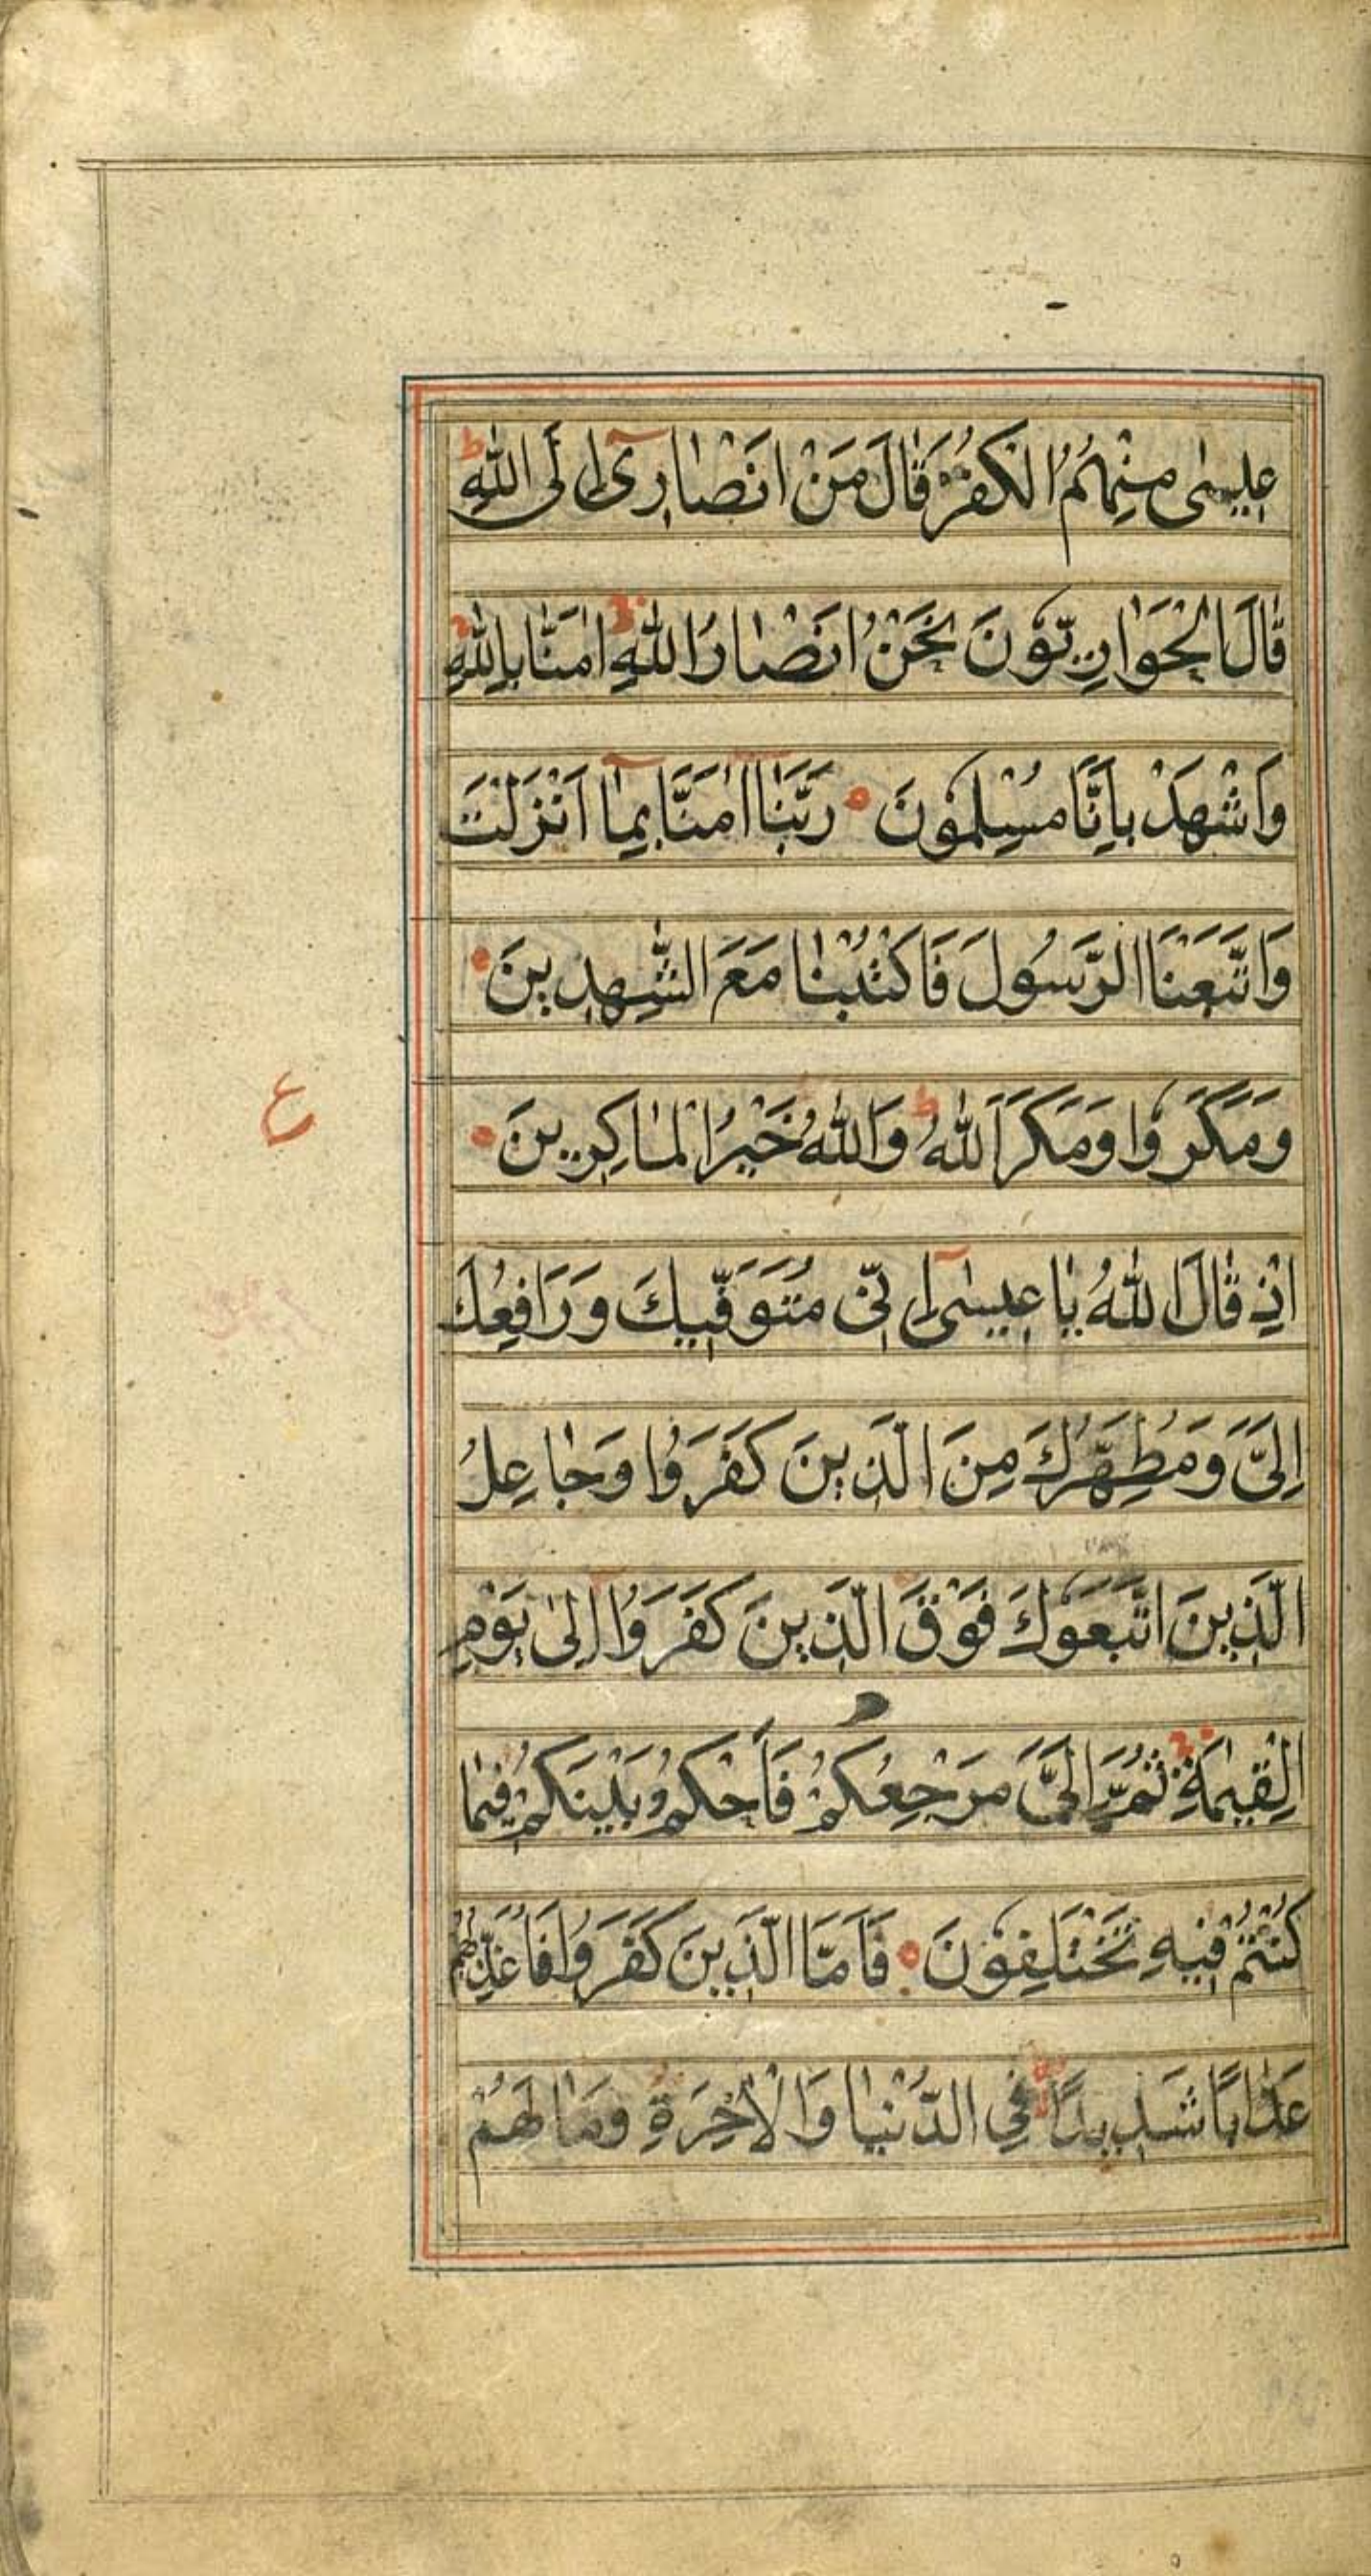 عِيسٰى مِنْهُمُ الْكُفْرَ قَالَ مَنْ اَنْصَارِىٓ اِلَى اللّٰهِ ط
قَالَ الْحَوَارِيُّونَ نَحْنُ اَنْصَارُ اللّٰهِ ج اٰمَنَّا بِاللّٰهِ ج
وَاشْهَدْ بِاَنَّا مُسْلِمُونَ ۝ رَبَّنَآ اٰمَنَّا بِمَآ اَنْزَلْتَ
وَاتَّبَعْنَا الرَّسُولَ فَاكْتُبْنَا مَعَ الشّٰهِدِينَ ۝
وَمَكَرُوا وَمَكَرَ اللّٰهُ ط وَاللّٰهُ خَيْرُ الْمَاكِرِينَ ۝
ع
اِذْ قَالَ اللّٰهُ يَا عِيسٰىٓ اِنِّى مُتَوَفِّيكَ وَرَافِعُكَ
اِلَىَّ وَمُطَهِّرُكَ مِنَ الَّذِينَ كَفَرُوا وَجَاعِلُ
الَّذِينَ اتَّبَعُوكَ فَوْقَ الَّذِينَ كَفَرُوٓا اِلٰى يَوْمِ
الْقِيٰمَةِ ج ثُمَّ اِلَىَّ مَرْجِعُكُمْ فَاَحْكُمُ بَيْنَكُمْ فِيمَا
كُنْتُمْ فِيهِ تَخْتَلِفُونَ ۝ فَاَمَّا الَّذِينَ كَفَرُوا فَاُعَذِّبُهُمْ
عَذَابًا شَدِيدًا فِى الدُّنْيَا وَالْاٰخِرَةِ وَمَا لَهُمْ